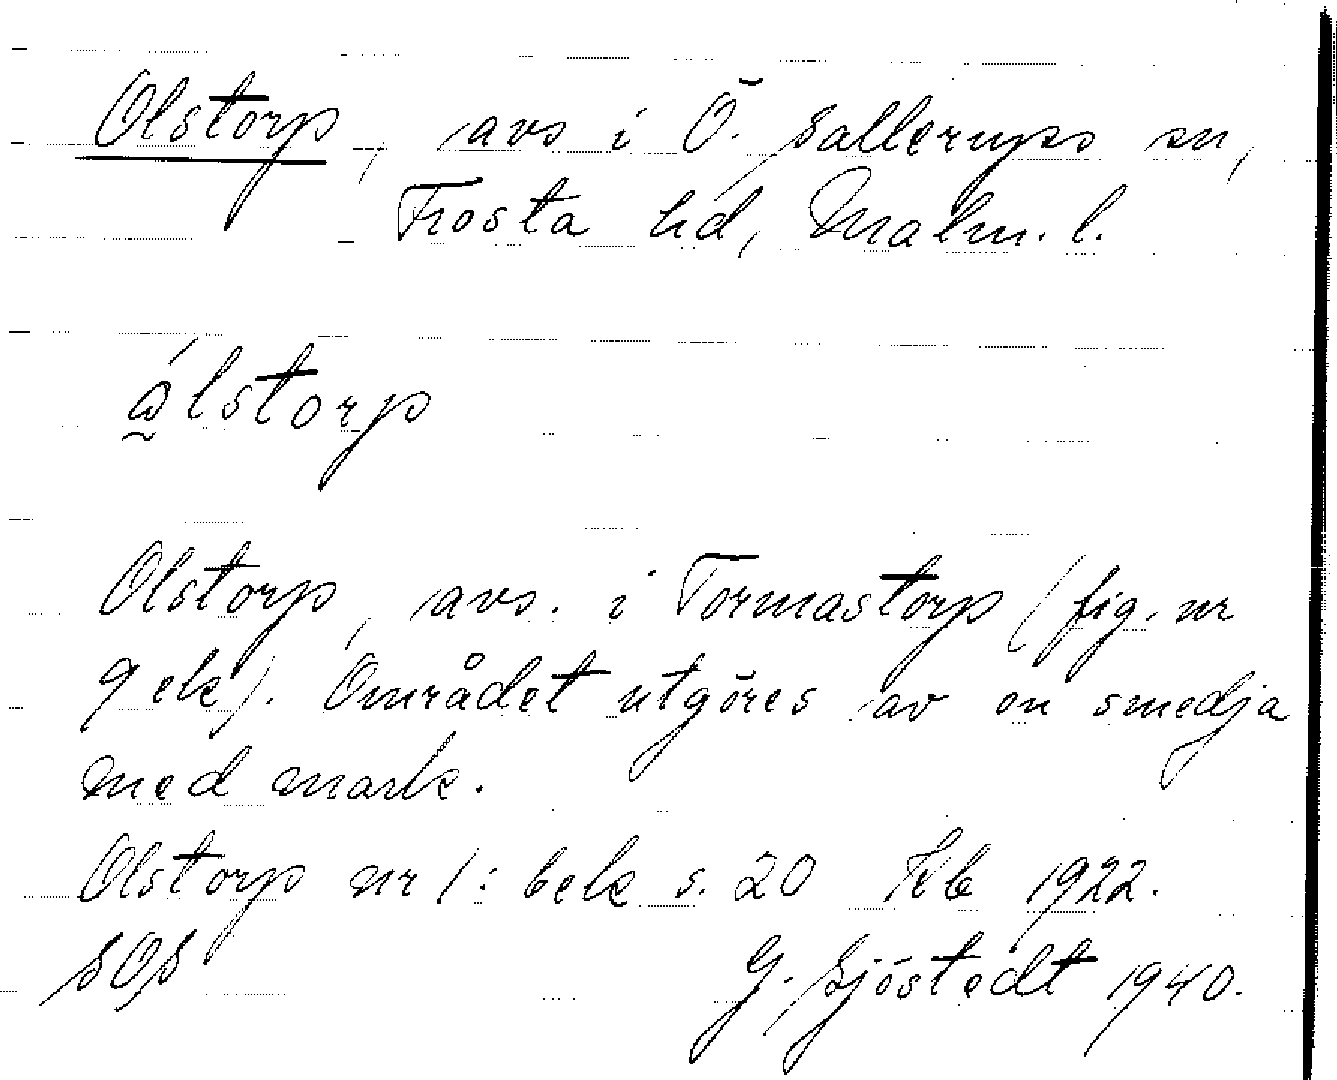 Olstorp, avs i Ö. Sallerups sn,
Frosta hd, Malm. l.
ålstorp
Olstorp, avs. i Tormastorp (fig. nr
9 ek). Området utgöres av en smedja
med mark.
Olstorp nr 1: bek s. 20 Kb 1922.
SOS G. Sjöstedt 1940.